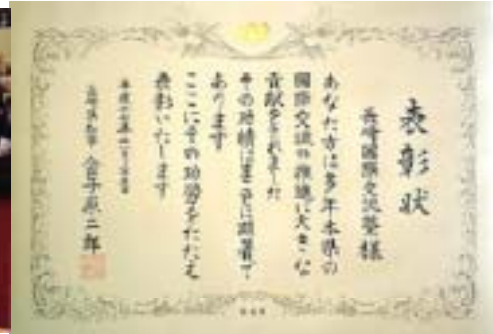 表彰状
長崎國際交流塾様
あなた方は多年本県の
國際交流の推進に大きな
貢献をされました
その功績はまことに顕著で
あります
ここにその功労をたたえ
表彰いたします
長崎県知事 金子原二郎